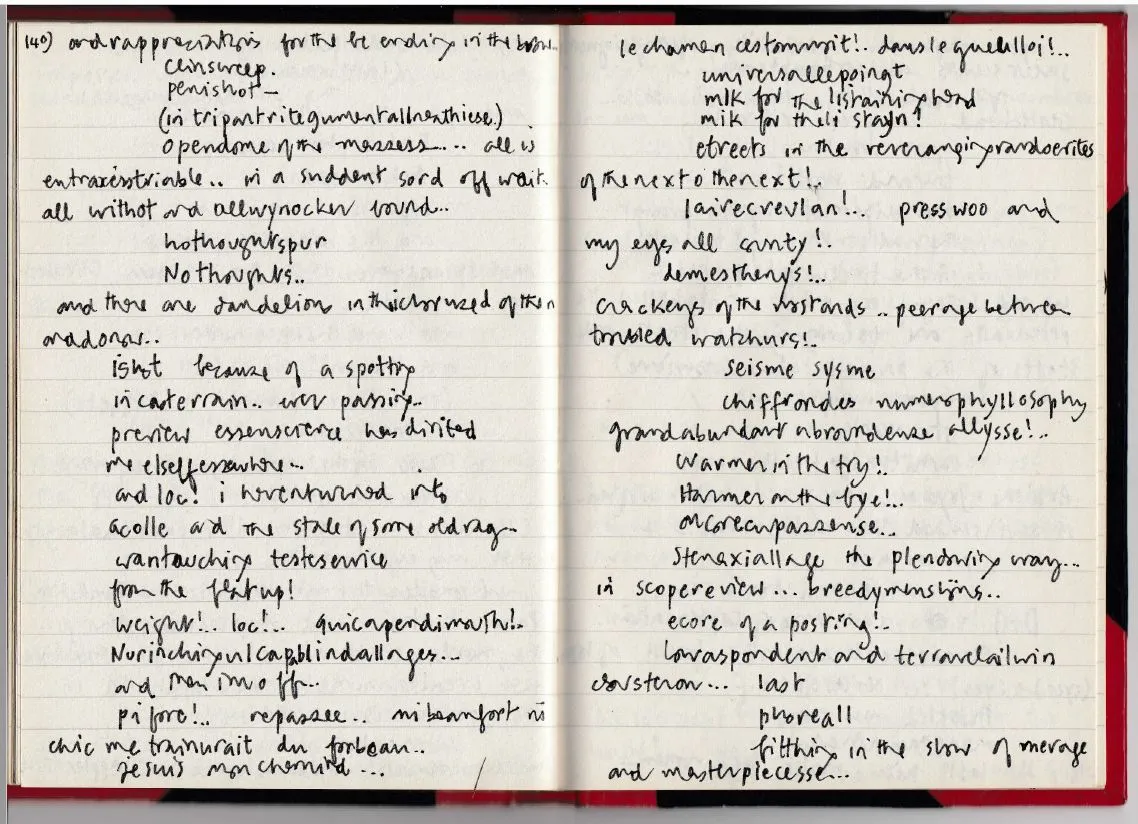 140) and rappreciations for the be ending in the
cleinsweep.
penishot —
(in tripartritegumentallneathiese.)
opendome of the massess.... all is
entraxisstriable.. in a suddent sord off wait.
all withot and allwynocker bound...
hothoughtspur
Nothoughts..
and there are dandelions in the of the
madonas..
ishot because of a spotting
incaterrain.. ever passing..
preview essenscience has dirited
me elseffesswhere...
and loc! i haventurned into
acolle and the stale of some oldrag...
wantouching testeservice
from the flatup!
weight!.. loc!.. quicapendimouth!..
and then imoff...
piforc!.. repassee.. mibeaufort ni
chic me trainurait du forbeau..
jesuis monchemind...
lechamen cestommrit!. danslequelloi!..
universalleppingt
milk for the listaining head
mik for theli stayn!
etreets in the reveranging
of the next o thenext!..
lairecrevlan!... presswoo and
my eyes all canty!.
demesthenys!..
crackeys of the nostands.. peerage between
troubled watchurs!..
seisme sysme
chiffrondes numerophyllosophy
grandabundant abroundense allysse!..
warmen in the try!..
Harmer on the bye!...
oncorecupassense...
stenaxiallage the plendowring way...
in scopereview... breedymensijns..
ecore of a posting!..
lowraspondent and terravelailwin
last
phoreall
filthing in the slow of merage
and masterpiecesse...